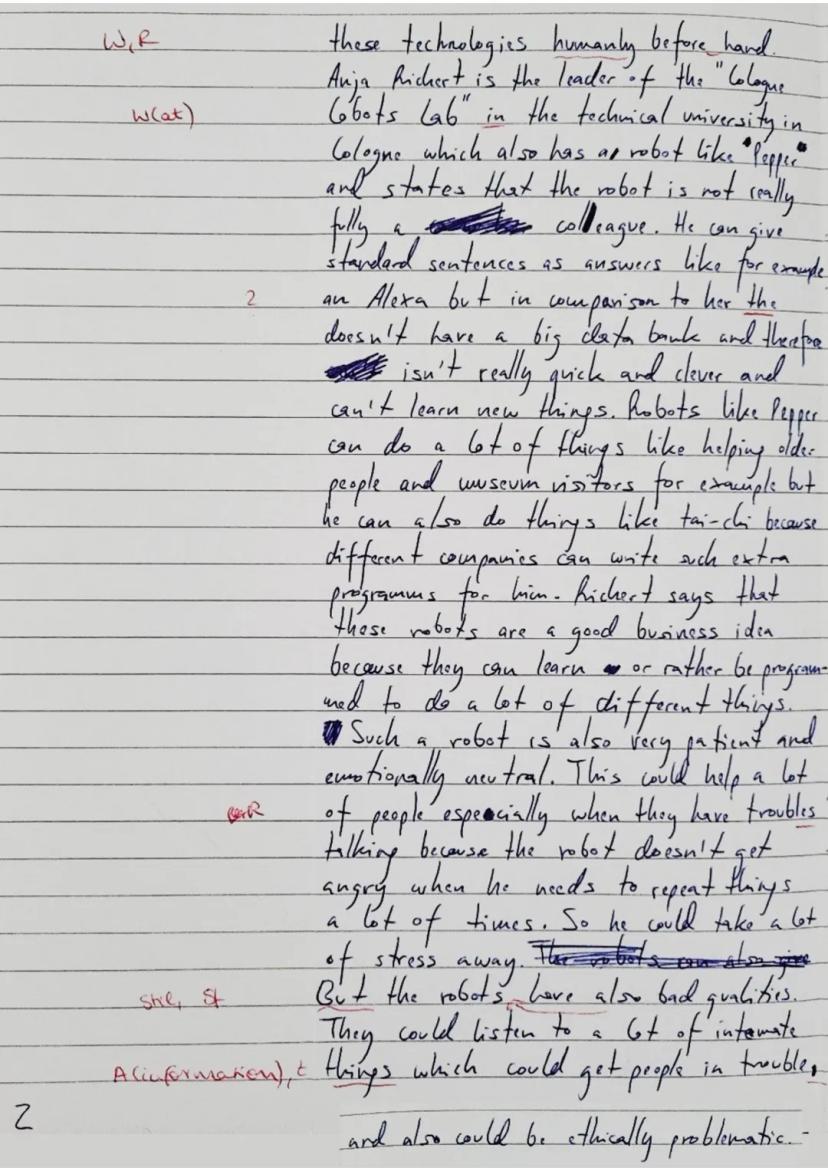 W, R these technologies humanly before hand.
Anja Richert is the leader of the "Cologne
W(at) Cobots Lab" in the technical university in
Cologne which also has a robot like "Pepper"
and states that the robot is not really
fully a colleague. He can give
standard sentences as answers like for example
2 an Alexa but in comparison to her the
doesn't have a big data bank and therefore
isn't really quick and clever and
can't learn new things. Robots like Pepper
can do a lot of things like helping older
people and museum visitors for example but
he can also do things like tai-chi because
different companies can write such extra
programms for him. Richert says that
these robots are a good business idea
because they can learn or rather be program-
med to do a lot of different things.
Such a robot is also very patient and
emotionally neutral. This could help a lot
R of people especially when they have troubles
talking because the robot doesn't get
angry when he needs to repeat things
a lot of times. So he could take a lot
of stress away. The robots can also give
St But the robots have also bad qualities.
They could listen to a lot of intemate
A(information), t things which could get people in trouble,
2 and also could be ethically problematic.-